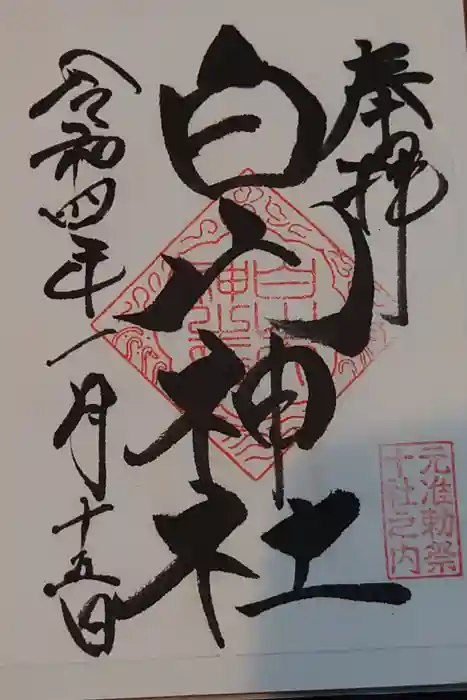 奉拝
白山神社
令和四年一月十五日
元准勅祭
十社之内
白山神社